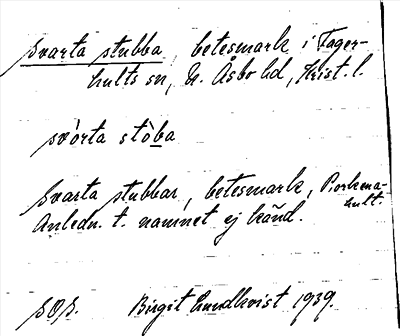 Svarta stubba, betesmark i Fager-
hults sn, N. Åsbo hd, Krist. l.
svòrta stòba
Svarta stubbar, betesmark, Porkena-
hult.
Anledn. t. namnet ej känd.
SOS. Birgit Lundkvist 1939.